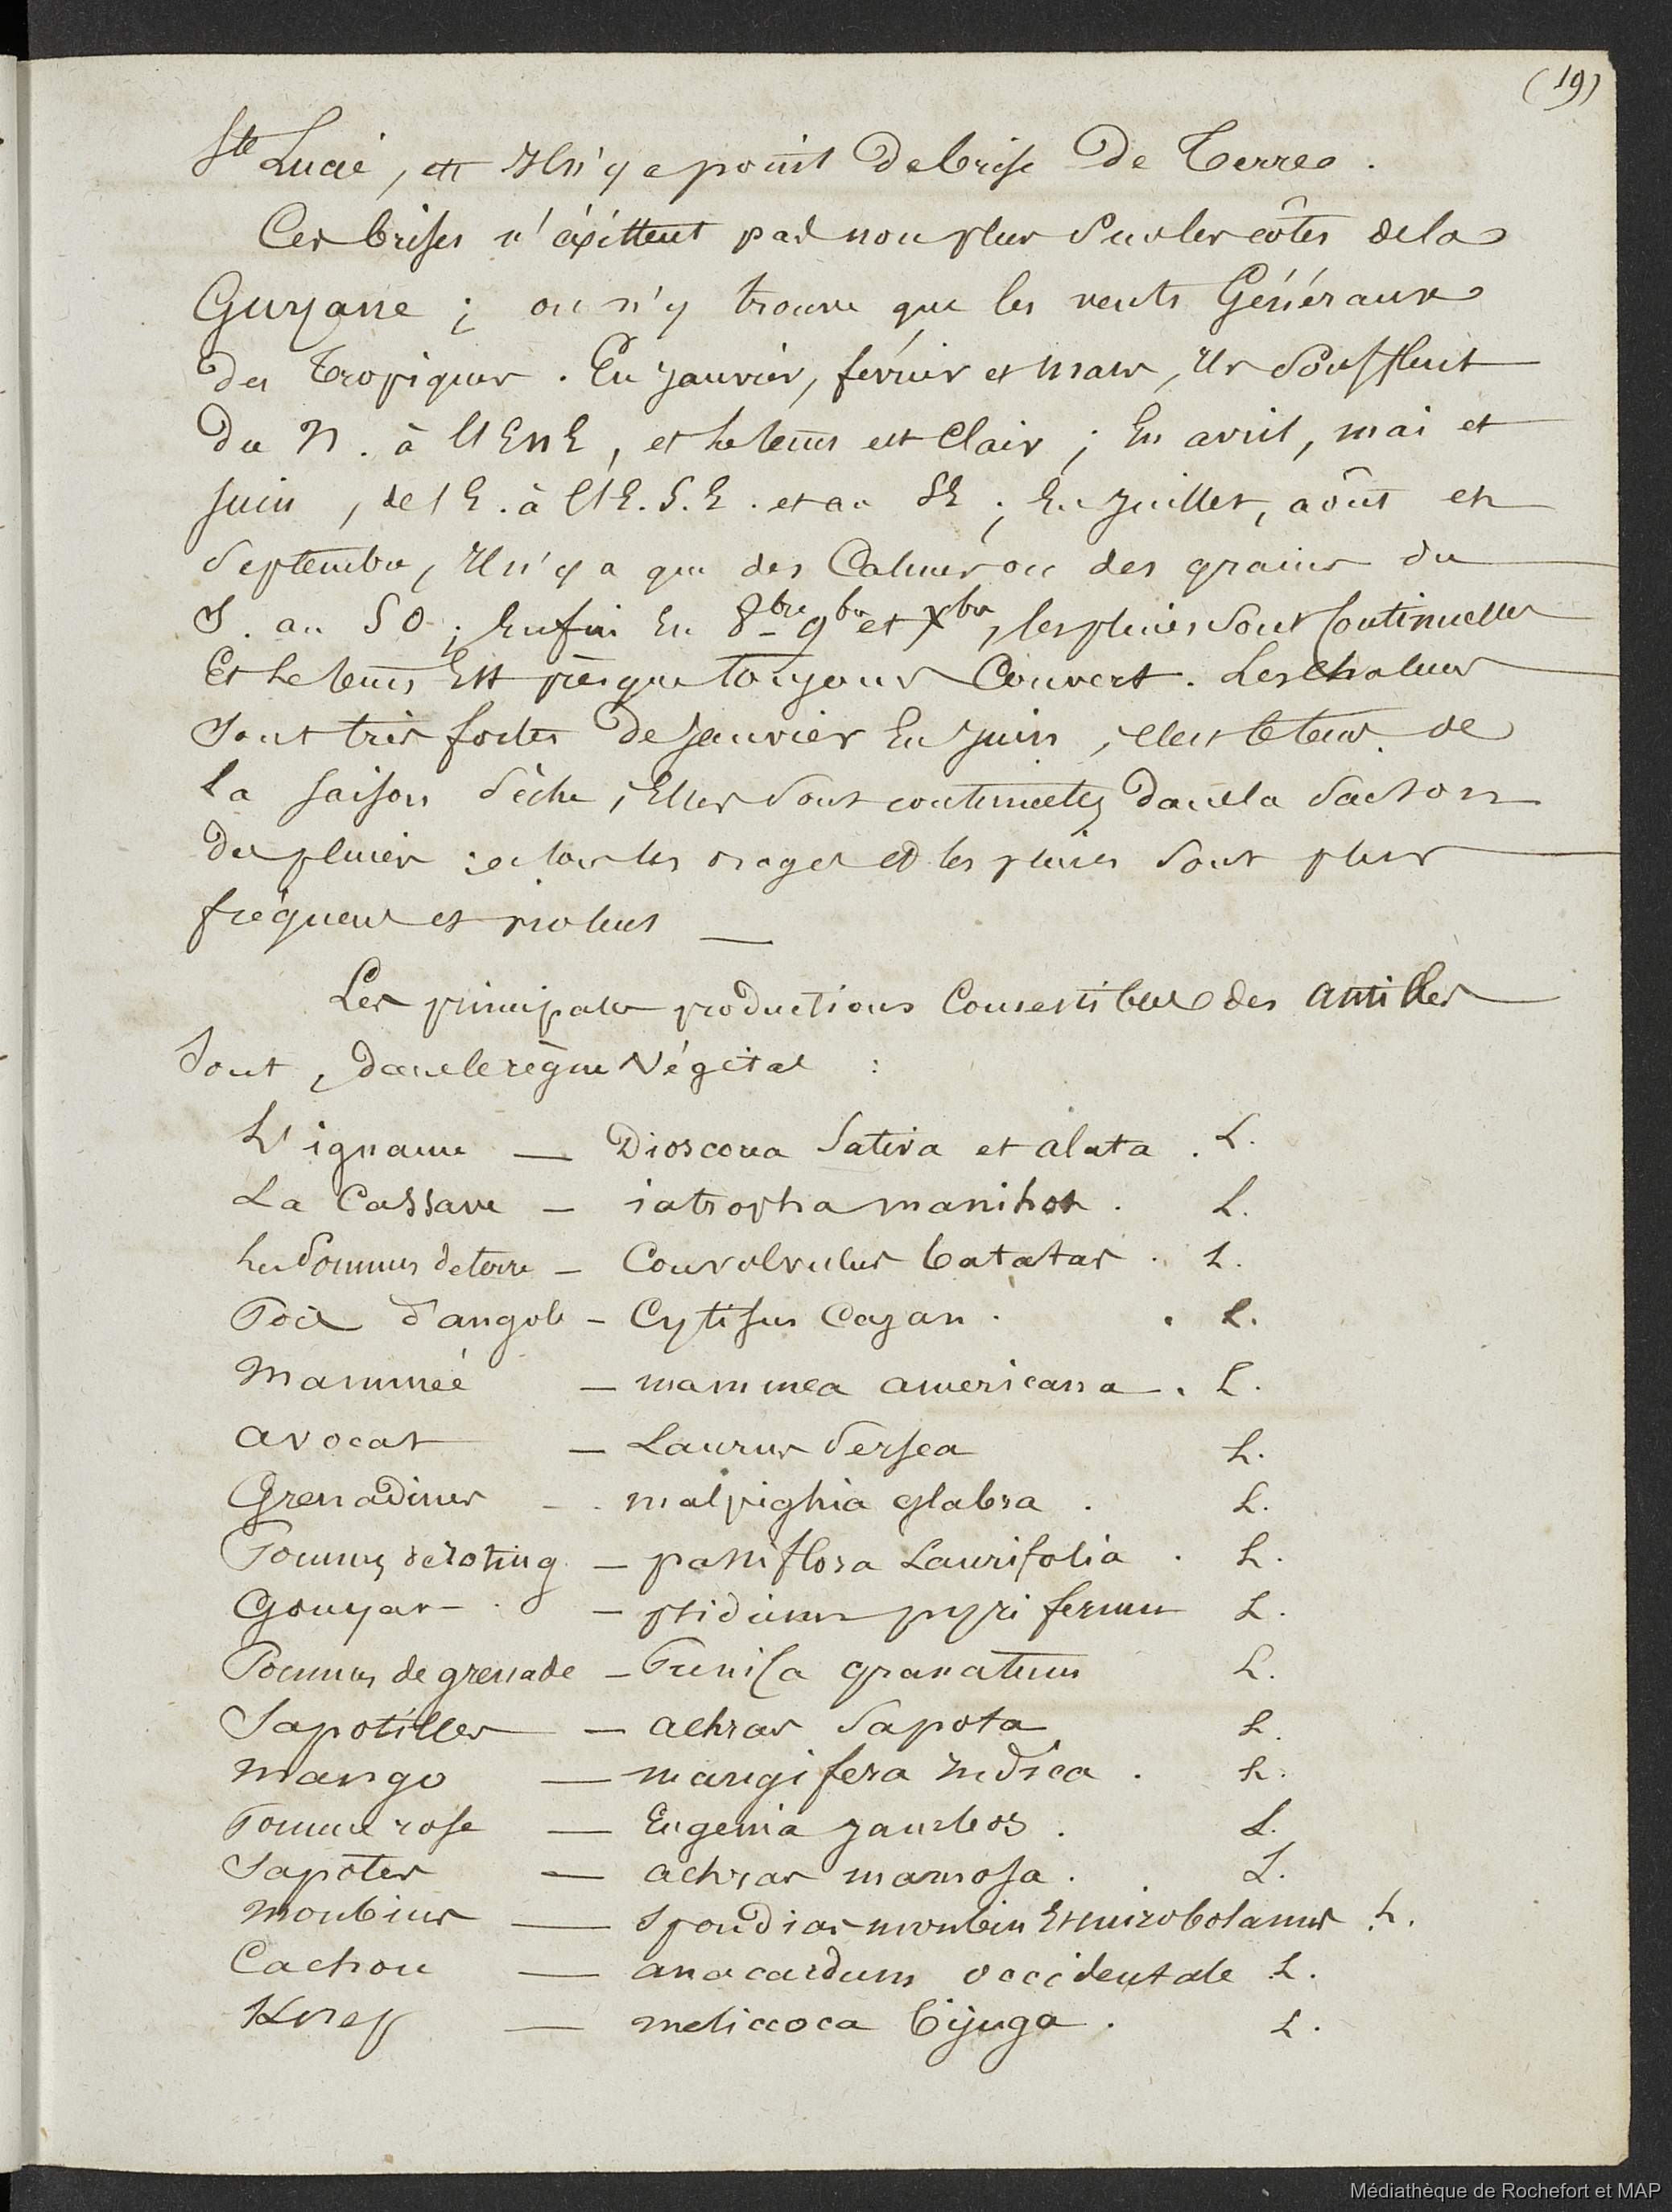 (19)
Ste Lucie, et Il n'y a point de brise de Terre.
Ces brises n'éxistent pas non plus Sur les côtes de la
Guyane ; on n'y trouve que les vents Généraux
des Tropiques . En janvier, février et mars, Ils Soufflent
du N . à l'ENE , et le tems est Clair ; En avril, mai et
juin , de l'E . à l'E. S. E . et au SE ; En juillet, août et
Septembre, Il n'y a que des Calmes ou des grains du
S . au SO ; Enfin En 8bre 9bre et Xbre, les pluies Sont Continuelles
Et le tems Est présque toujours Couvert . Les Chaleurs
Sont très fortes de janvier En juin , c'est le tems de
la saison Sèche ; Elles Sont continuelles dans la Saison
des pluies ; alors les orages et les pluies Sont plus
fréquens et violens —
Les principales productions Comestibles des antilles
Sont , dans le règne Végétal :
L'igname — Dioscorea Sativa et alata . L.
La Cassave — iatropha manihot . L.
Les Pommes de terre — Convolvulus batatas . L.
Pois d'angole — Cytisus Cajan . . L.
Mammée — mammea americana . L.
avocat — Laurus Persea L.
Grenadines — malpighia glabra . L.
Pommes de — passiflora Laurifolia . L.
Gouyav . — psidium pyriferum L.
Pommes de grenade — Punica granatum L.
Sapotilles — achras Sapota L.
Mango — mangifera indica . L.
Pomme rose — Eugenia jambos . L.
Sapotes — achras mamosa . L.
Monbins — Spondias monbin Et mirobolanus L.
Cachou — anacardum occidentale L.
Knep — melicoca bijuga . L.
Médiathèque de Rochefort et MAP